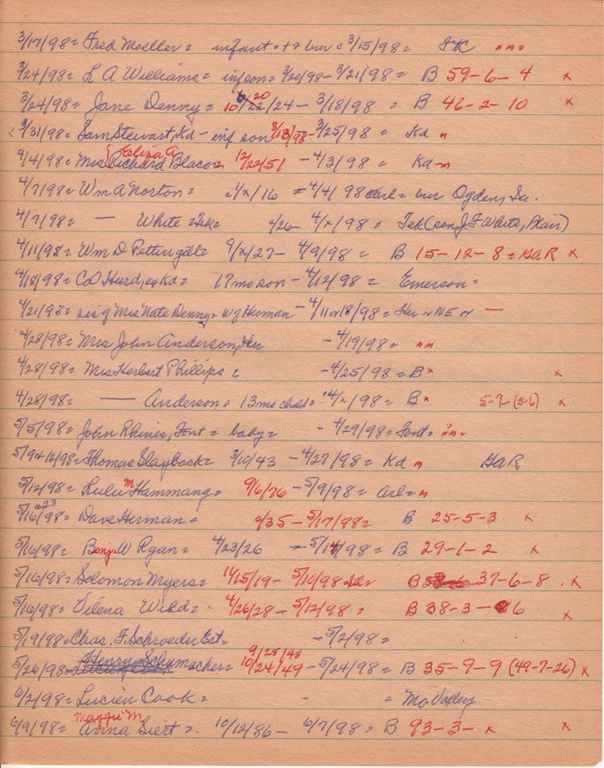 3/17/98 = Fred Moeller = infant = + & bur c 3/15/98 = "n =
3/24/98 = L A Williams = inf son = 3/20/98 - 3/21/98 = B 59-6-4 x
3/24/98 = Jane Denny = 10/22/24 - 3/18/98 = B 46-2-10 x
3/31/98 = Sam Stewart, Kd - inf son 3/13/98 - 3/25/98 = Kd n
4/4/98 = Mrs { Eliza A Richard Blacor 12/22/51 - 4/3/98 = Kd n
4/7/98 = Wm A Norton = 2/x/16 = 4/4/98 = bur Ogden, Ia.
4/7/98 = — White = - 4/x/98 = (son J F White, Plain)
4/11/98 = Wm D Pettingill = 9/x/27 - 4/9/98 = B 15-12-8 = GAR x
4/18/98 = C D Hurdrey Kd = 17 mo son - 4/12/98 = Emerson =
4/21/98 = sis of Mrs Nate Denny = w of Human - 4/11 or 18/98 = Her n NE n —
4/28/98 = Mrs John Anderson, Her - 4/19/98 = "n
4/28/98 = Mrs Herbert Phillips c - 4/25/98 = B x
4/28/98 = — Anderson = 13 mo child = 4/x/98 = B 5-2 (5-6) x
5/5/98 = John Rhines, Font = baby = - 4/29/98 = Font = "n =
5/9 & 12/98 = Thomas Slayback = 3/10/43 - 4/27/98 = Kd n GAR
5/12/98 = Lulu M Hammang = 9/6/76 - 5/9/98 = Arl = n
5/16 & 23/98 = Dave Herman = /35 - 5/17/98 = B 25-5-3 x
5/16/98 = Benj W Ryan = 4/23/26 - 5/14/98 = B 29-1-2 x
5/16/98 = Solomon Myers = 11/15/19 - 5/10/98 = B 37-6-8 x
5/16/98 = Vilena Wild = 4/26/28 - 5/12/98 = B 38-3-6 x
5/19/98 = Chas. F. Schroeder Est = - 5/2/98 =
5/26/98 = Henry Schumacher = 9/25/48 10/24/49 - 5/24/98 = B 35-9-9 (49-7-26) x
6/2/98 = Lucien Cook = - = Mo Valley
6/9/98 = Maggie M Anna Siert = 10/12/86 - 6/7/98 = B 93-3-x x